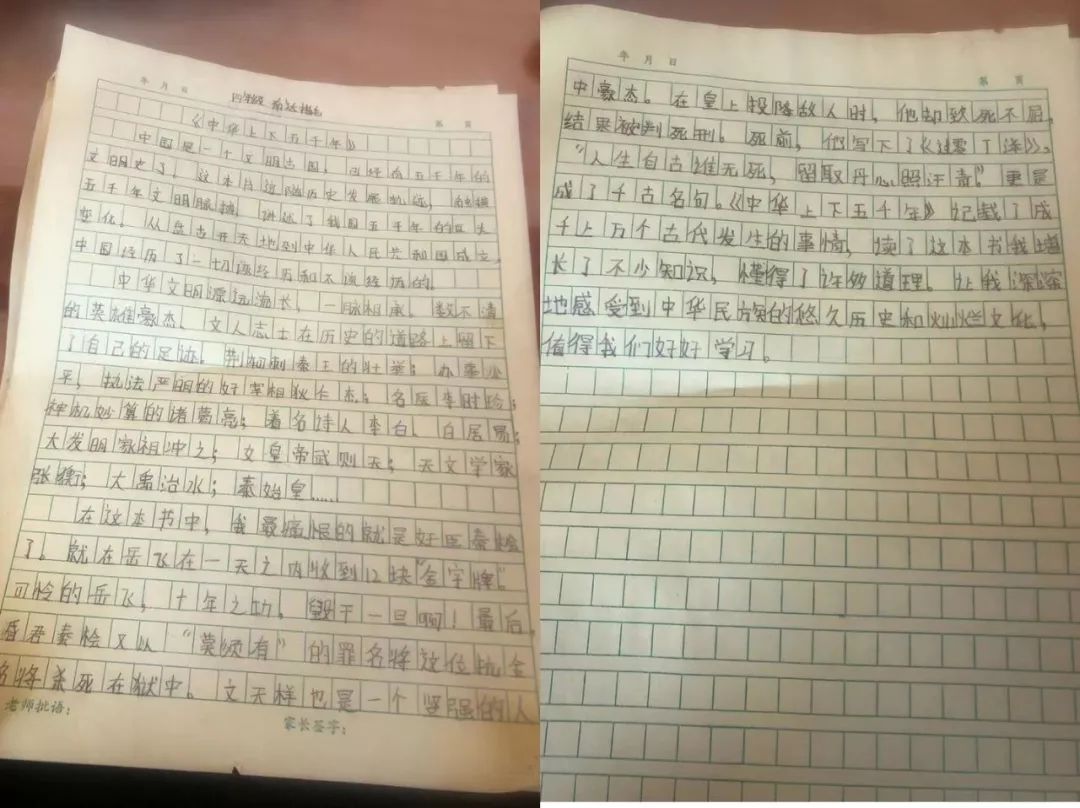 年 月 日
四年级
第 页
《中华上下五千年》
中国是一个文明古国，已经有五千年的
文明史了。这本书追随历史发展轨迹，
五千年文明脉搏，讲述了我国五千年的
变化。从盘古开天地到中华人民共和国成立，
中国经历了一切该经历和不该经历的。
中华文明源远流长，一脉相承。数不清
的英雄豪杰、文人志士在历史的道路上留下
了自己的足迹。荆轲刺秦王的壮举；办事公
平，执法严明的好宰相狄仁杰；名医李时珍；
神机妙算的诸葛亮；著名诗人李白、白居易；
大发明家祖冲之；女皇帝武则天；天文学家
张衡；大禹治水；秦始皇……
在这本书中，我最痛恨的就是奸臣秦桧
了。就在岳飞在一天之内收到12块“金字牌”。
可怜的岳飞，十年之功，毁于一旦啊！最后，
昏君秦桧又以“莫须有”的罪名将这位抗金
名将杀死在狱中。文天样也是一个坚强的人
老师批语：
家长签字：
年 月 日
第 页
中豪杰。在皇上投降敌人时，他却致死不屈，
结果被判死刑。死前，他写下了《过零丁洋》，
“人生自古谁无死，留取丹心照汗青。”更是
成了千古名句。《中华上下五千年》记载了成
千上万个古代发生的事情，读了这本书我增
长了不少知识，懂得了许多道理。让我深深
地感受到中华民族的悠久历史和灿烂文化，
值得我们好好学习。